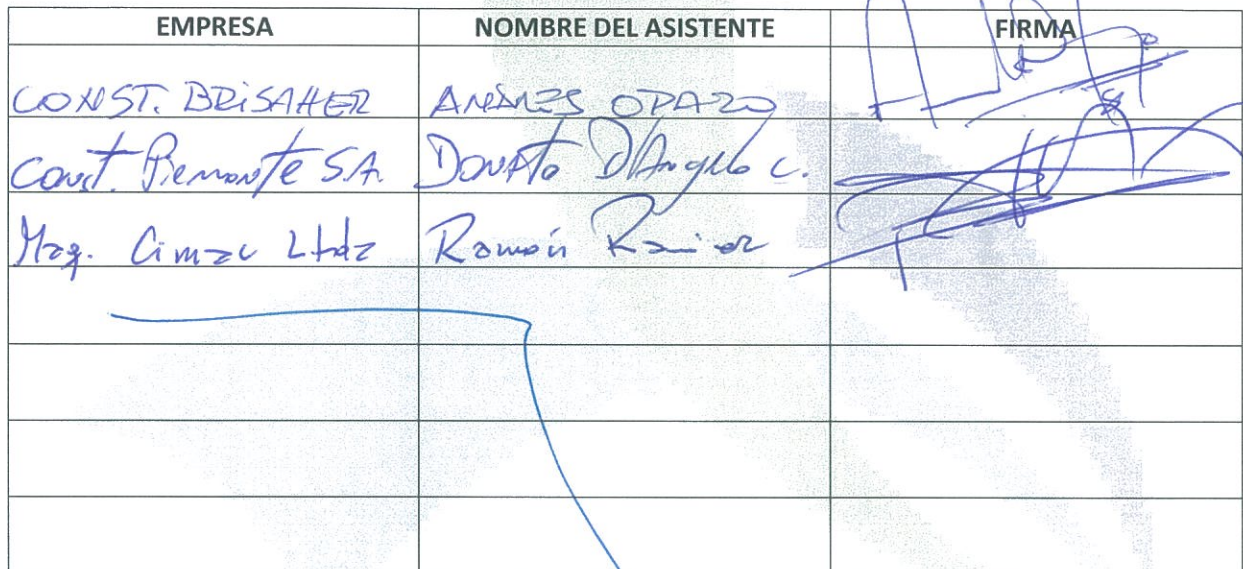 EMPRESA NOMBRE DEL ASISTENTE FIRMA
CONST. BRISAHER ANDRES OPAZO
Const. Piemonte S.A. Donato D'Angelo C.
Maq. Cimac Ltda Ramón